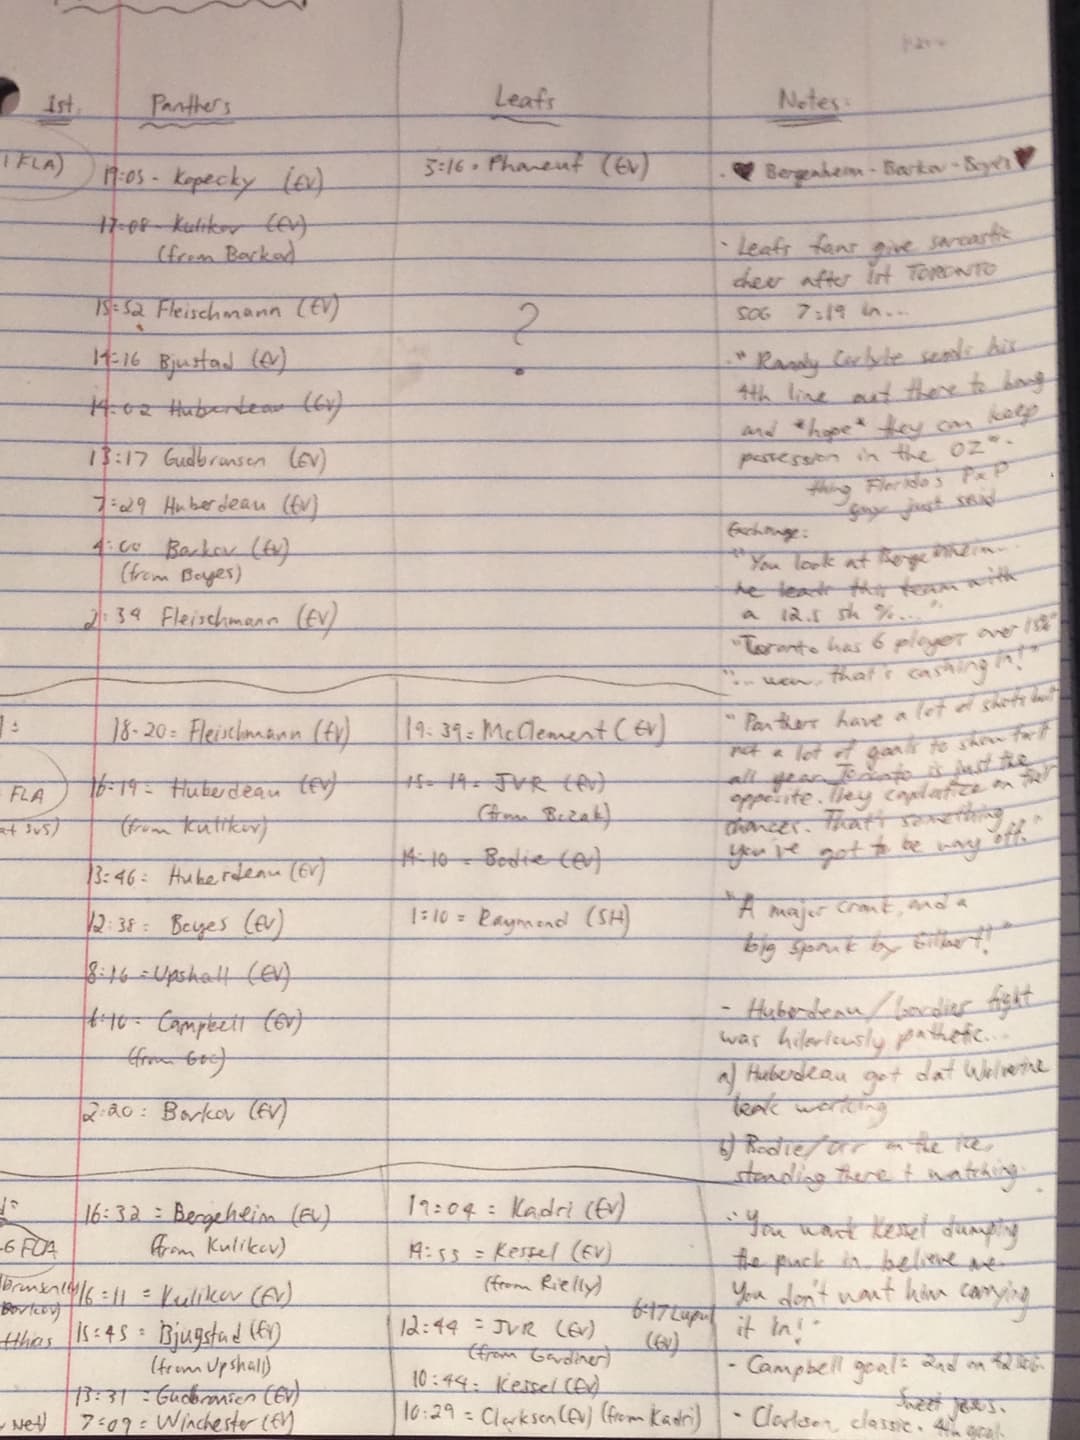 1st. Panthers Leafs Notes:
1 FLA) 19:05 - Kopecky (EV) 5:16 - Phaneuf (EV) - ♥ Bergenheim - Barkov - Boyes ♥
17:08 - Kulikov (EV)
(from Barkov)
- Leafs fans give sarcastic
cheer after 1st TORONTO
15:52 Fleischmann (EV) ? SOG 7:19 in...
14:16 Bjustad (EV) - "Randy Carlyle sends his
4th line out there to bang
14:02 Huberdeau (EV) and *hope* they can keep
13:17 Gudbransen (EV) possession in the OZ".
thing Florida's PxP
7:29 Huberdeau (EV) guy just said
Exchange:
4:00 Barkov (EV) "You look at Bergenheim...
(from Boyes) he leads this team with
2:39 Fleischmann (EV) a 12.5 sh %..."
"Toronto has 6 player over 15%"
"... wow, that's cashing in!"
18-20= Fleischmann (EV) 19:39= McClement (EV) "Panthers have a lot of shots but
not a lot of goals to show for it
16:19= Huberdeau (EV) 15-19= JVR (EV) all year. Toronto is just the
FLA (from Kulikov) (from Bozak) opposite. They capitalize on their
at 5v5) chances. That's something
13:46= Huberdeau (EV) 14-10 = Bodie (EV) you've got to be wary of."
12:38= Boyes (EV) 1:10= Raymond (SH) "A major crank, and a
big spank by Gilbert!"
8:16 = Upshall (EV)
6:10= Campbell (EV) - Huberdeau/ fight
(from Goc) was hilariously pathetic...
a) Huberdeau got dat Wolverine
2:20: Barkov (EV) leak working
b) Bodie/Orr on the ice,
standing there + watching.
16:32 = Bergeheim (EV) 19:04 = Kadri (EV) "You want Kessel dumping
-6 FLA (from Kulikov) 14:53 = Kessel (EV) the puck in, believe me.
(from Rielly) You don't want him carrying
16=11 = Kulikov (EV) it in!"
Barkov) 15=45= Bjugstad (EV) 12:44 = JVR (EV) 6:17 Lupul
tthias (from Upshall) (from Gardiner) (EV) - Campbell goal= 2nd on
13:31 = Gudbransen (EV) 10:44= Kessel (EV) Sweet Jesus.
Net) 7:09= Winchester (EV) 10:29 = Clarkson (EV) (from Kadri) - Clarkson classic. 4th goal.